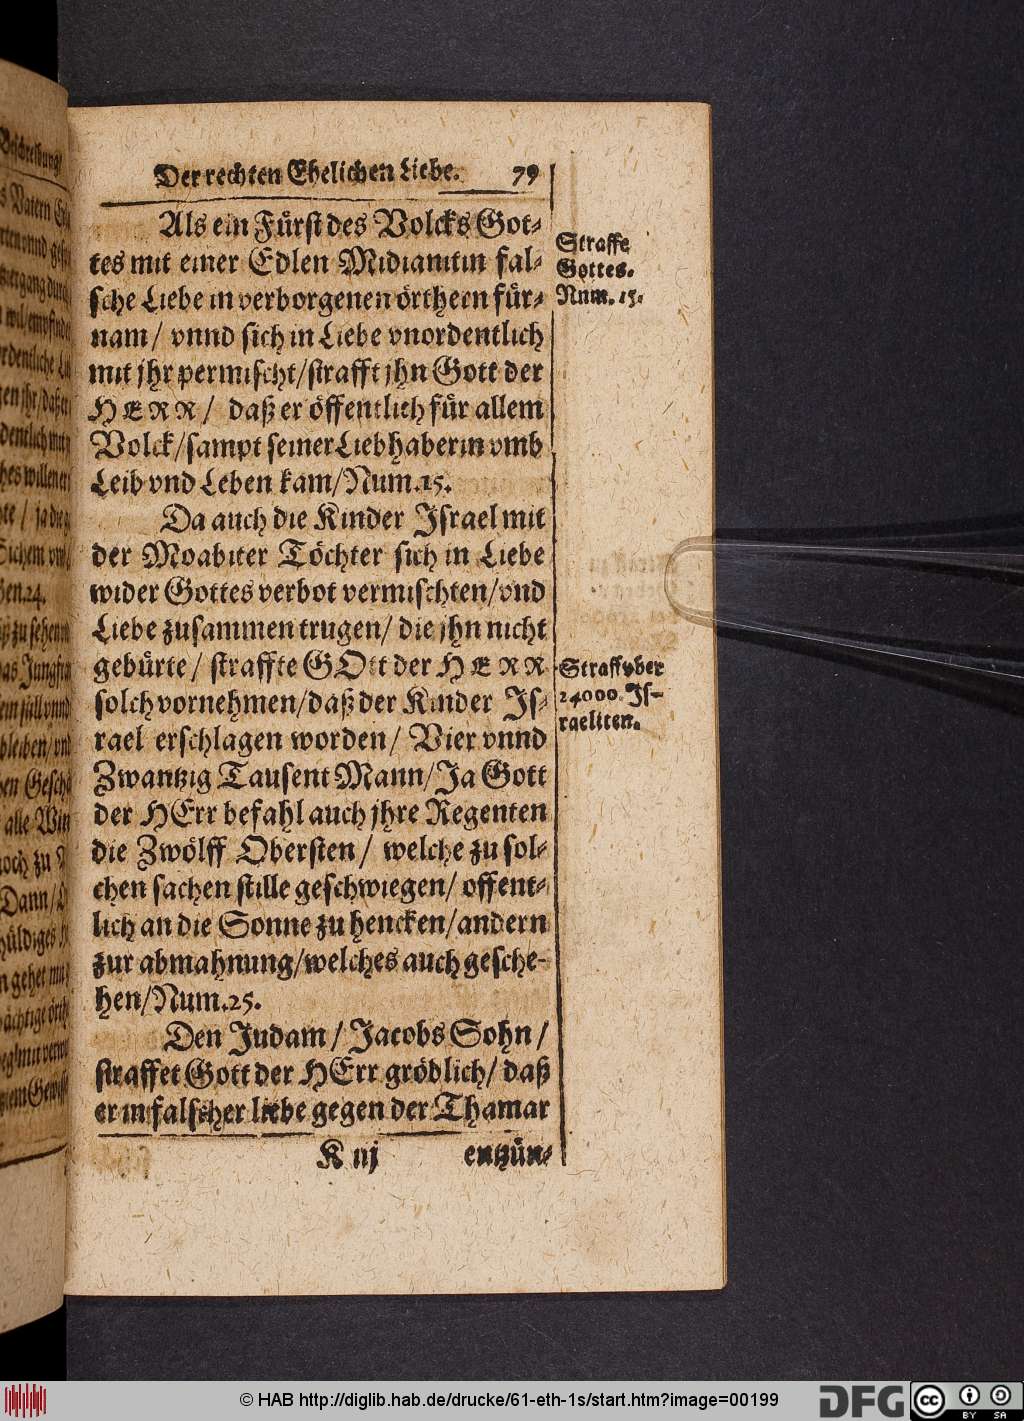 Der rechten Ehelichen Liebe. 79
Als ein Fürst des Volcks Got-
tes mit einer Edlen Midianitin fal-
sche Liebe in verborgenen örthern für-
nam / vnnd sich in Liebe vnordentlich
mit jhr permischt/strafft jhn Gott der
HERR / daß er öffentlich für allem
Volck/sampt seiner Liebhaberin vmb
Leib vnd Leben kam/Num.15.
Da auch die Kinder Israel mit
der Moabiter Töchter sich in Liebe
wider Gottes verbot vermischten/vnd
Liebe zusammen trugen/ die jhn nicht
gebürte / straffte GOtt der HERR
solch vornehmen/daß der Kinder Is-
rael erschlagen worden/ Vier vnnd
Zwantzig Tausent Mann/Ja Gott
der HErr befahl auch jhre Regenten
die Zwölff Obersten / welche zu sol-
chen sachen stille geschwiegen/ offent-
lich an die Sonne zu hencken/andern
zur abmahnung/welches auch gesche-
hen/Num.25.
Den Judam / Jacobs Sohn /
straffet Gott der HErr gröblich/ daß
er in falscher liebe gegen der Thamar
K iij entzün-
Straffe
Gottes.
Num. 15.
Straff vber
24000. Is-
raeliten.
© HAB http://diglib.hab.de/drucke/61-eth-1s/start.htm?image=00199
DFG
cc BY SA